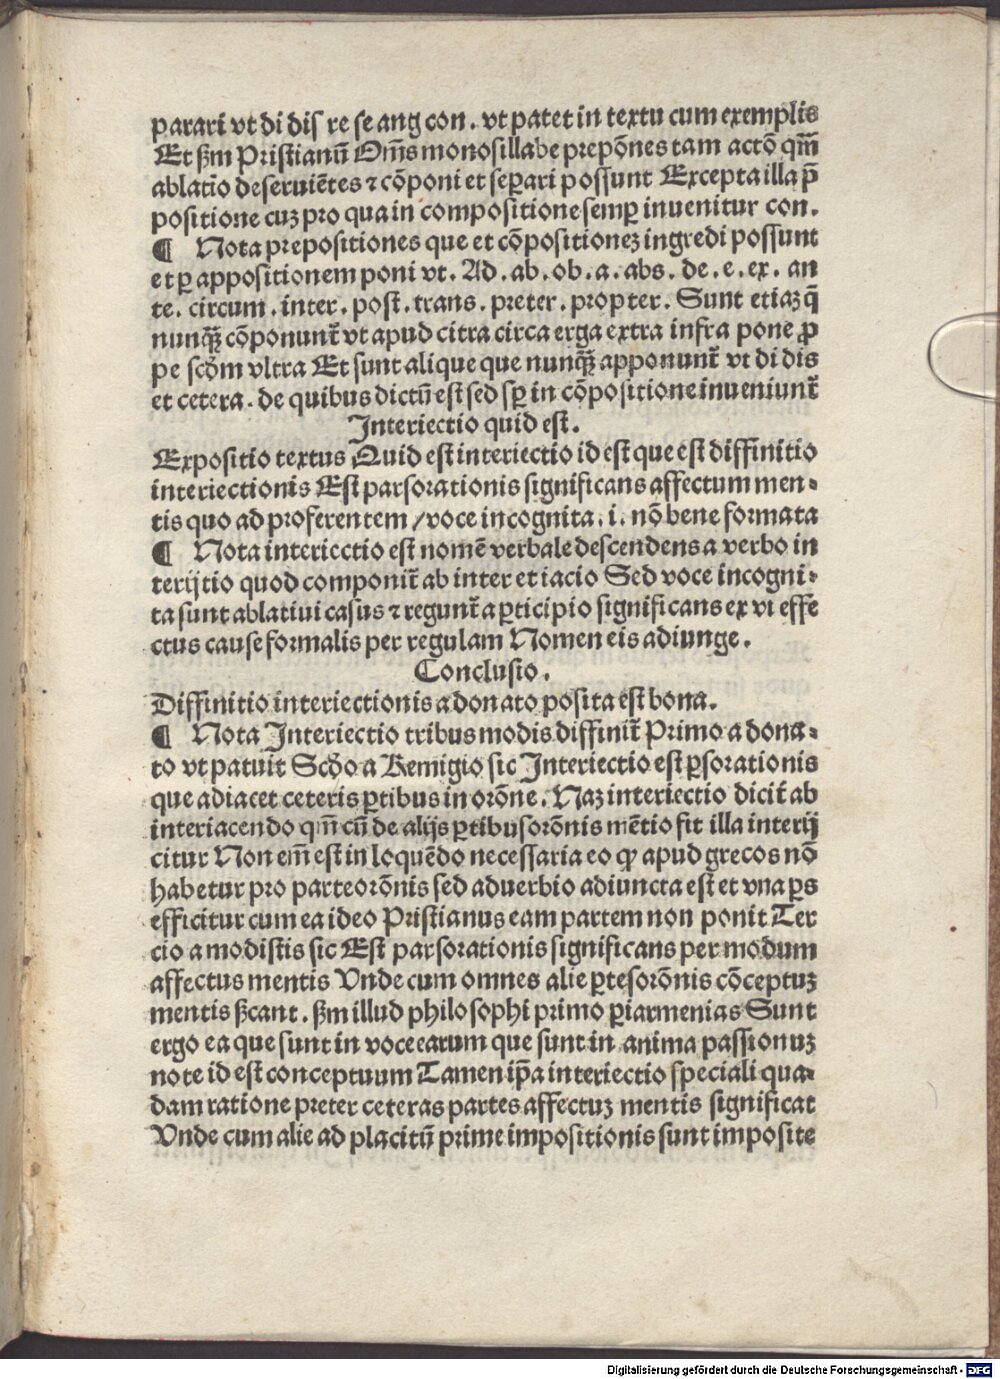 parari vt di dis re se ang con. vt patet in textu cum exemplis
Et ẞm Pristianū Om̄s monosillabe prepōnes tam actō qm̄
ablatīo deseruiētes ⁊ cōponi et seꝑari possunt Excepta illa p̄
positione cuꝫ pro qua in compositione semꝑ inuenitur con.
¶ Nota prepositiones que et cōpositioneꝫ ingredi possunt
et ꝑ appositionem poni vt. Ad. ab. ob. a. abs. de. e. ex. an
te. circum. inter. post. trans. preter. propter. Sunt etiaꝫ q̄
nunqꝫ̄ cōponunt̄ vt apud citra circa erga extra infra pone ꝓ
pe scd̄m vltra Et sunt alique que nunqꝫ̄ apponunt̄ vt di dis
et cetera. de quibus dictū est sed sꝑ in cōpositione inueniunt̄
Interiectio quid est.
Expositio textus Quid est interiectio id est que est diffinitio
interiectionis Est pars orationis significans affectum men-
tis quo ad proferentem / voce incognita. i. nō bene formata
¶ Nota interiectio est nomē verbale descendens a verbo in
terijtio quod componit̄ ab inter et iacio Sed voce incogni-
ta sunt ablatiui casus ⁊ regunt̄ a ꝑticipio significans ex vi effe
ctus cause formalis per regulam Nomen eis adiunge.
Conclusio.
Diffinitio interiectionis a donato posita est bona.
¶ Nota Interiectio tribus modis diffinit̄ Primo a dona-
to vt patuit Scd̄o a Remigio sic Interiectio est ꝑs orationis
que adiacet ceteris ꝑtibus in orōne. Naꝫ interiectio dicit̄ ab
interiacendo qm̄ cū de alijs ꝑtibus orōnis mētio fit illa interij
citur Non em̄ est in loquēdo necessaria eo ꝙ apud grecos nō
habetur pro parte orōnis sed aduerbio adiuncta est et vna ꝑs
efficitur cum ea ideo Pristianus eam partem non ponit Ter
cio a modistis sic Est pars orationis significans per modum
affectus mentis Vnde cum omnes alie ꝑtes orōnis cōceptuꝫ
mentis ẞcant. ẞm illud philosophi primo ꝑiarmenias Sunt
ergo ea que sunt in voce earum que sunt in anima passionuꝫ
note id est conceptuum Tamen ip̄a interiectio speciali qua-
dam ratione preter ceteras partes affectuꝫ mentis significat
Vnde cum alie ad placitū prime impositionis sunt imposite
Digitalisierung gefördert durch die Deutsche Forschungsgemeinschaft - DFG